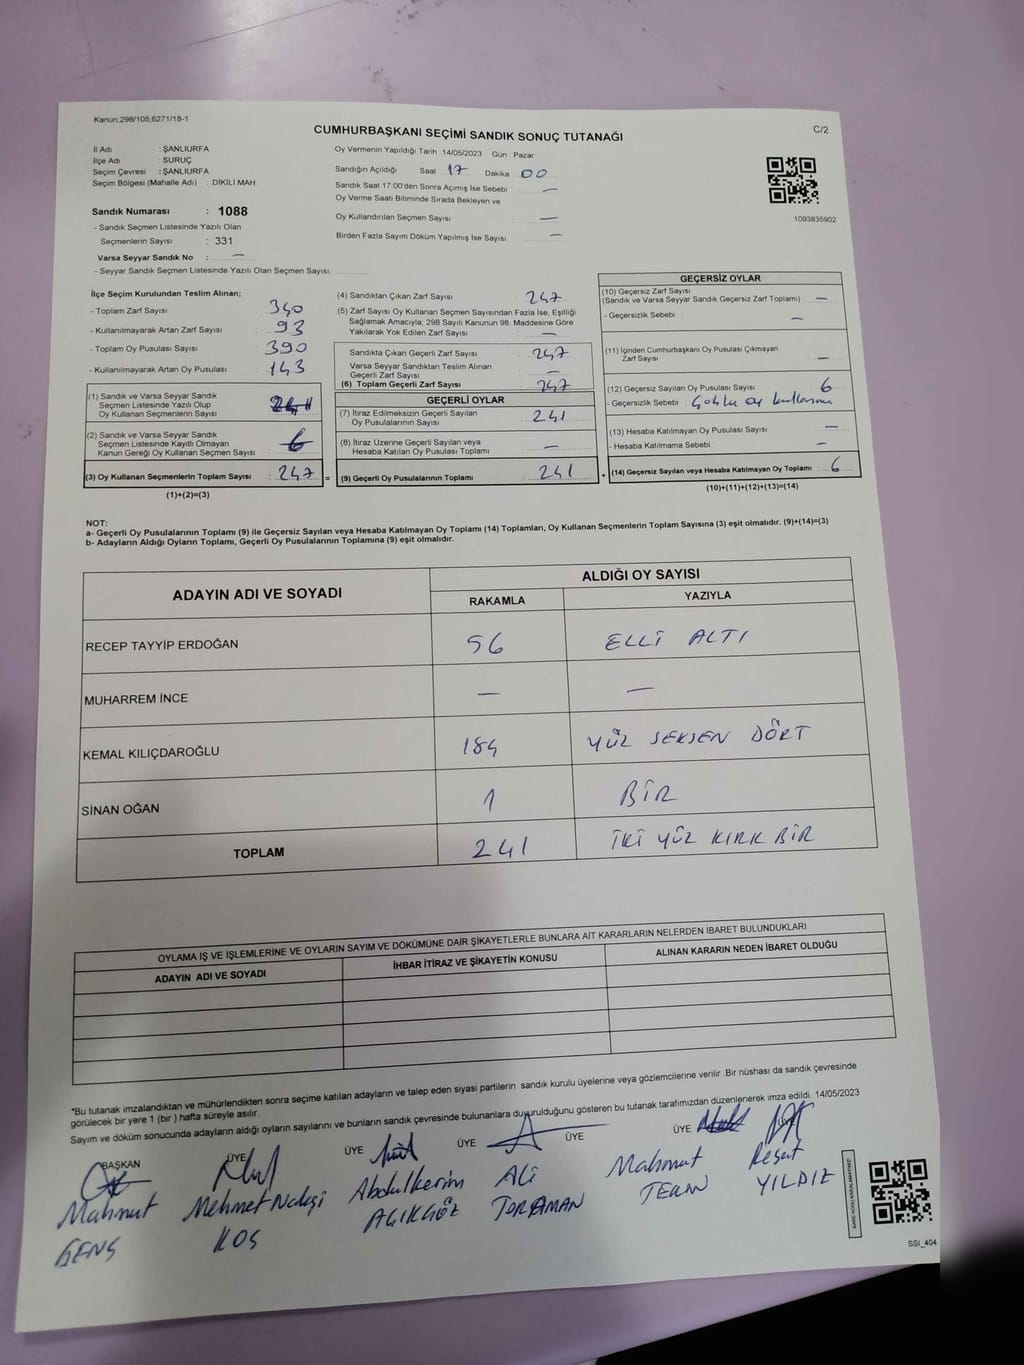 Kanun;298/105;6271/18-1
CUMHURBAŞKANI SEÇİMİ SANDIK SONUÇ TUTANAĞI
C/2
İl Adı : ŞANLIURFA
İlçe Adı : SURUÇ
Seçim Çevresi : ŞANLIURFA
Seçim Bölgesi (Mahalle Adı) : DİKİLİ MAH
Sandık Numarası : 1088
- Sandık Seçmen Listesinde Yazılı Olan
Seçmenlerin Sayısı : 331
Varsa Seyyar Sandık No : —
- Seyyar Sandık Seçmen Listesinde Yazılı Olan Seçmen Sayısı:
Oy Vermenin Yapıldığı Tarih :14/05/2023 Gün : Pazar
Sandığın Açıldığı Saat 17 Dakika 00
Sandık Saat 17:00'den Sonra Açımış İse Sebebi : —
Oy Verme Saati Bitiminde Sırada Bekleyen ve
Oy Kullandırılan Seçmen Sayısı : —
Birden Fazla Sayım Döküm Yapılmış İse Sayısı : —
1093835902
İlçe Seçim Kurulundan Teslim Alınan;
- Toplam Zarf Sayısı : 340
- Kullanılmayarak Artan Zarf Sayısı : 93
- Toplam Oy Pusulası Sayısı : 390
- Kullanılmayarak Artan Oy Pusulası : 143
(1) Sandık ve Varsa Seyyar Sandık
Seçmen Listesinde Yazılı Olup
Oy Kullanan Seçmenlerin Sayısı
(2) Sandık ve Varsa Seyyar Sandık
Seçmen Listesinde Kayıtlı Olmayan
Kanun Gereği Oy Kullanan Seçmen Sayısı : 6
(3) Oy Kullanan Seçmenlerin Toplam Sayısı : 247 =
(1)+(2)=(3)
(4) Sandıktan Çıkan Zarf Sayısı : 247
(5) Zarf Sayısı Oy Kullanan Seçmen Sayısından Fazla İse, Eşitliği
Sağlamak Amacıyla, 298 Sayılı Kanunun 98. Maddesine Göre
Yakılarak Yok Edilen Zarf Sayısı : —
Sandıkta Çıkan Geçerli Zarf Sayısı : 247
Varsa Seyyar Sandıktan Teslim Alınan
Geçerli Zarf Sayısı : —
(6) Toplam Geçerli Zarf Sayısı : 247
GEÇERLİ OYLAR
(7) İtiraz Edilmeksizin Geçerli Sayılan
Oy Pusulalarının Sayısı : 241
(8) İtiraz Üzerine Geçerli Sayılan veya
Hesaba Katılan Oy Pusulası Toplamı : —
(9) Geçerli Oy Pusulalarının Toplamı : 241 +
GEÇERSİZ OYLAR
(10) Geçersiz Zarf Sayısı
(Sandık ve Varsa Seyyar Sandık Geçersiz Zarf Toplamı) : —
- Geçersizlik Sebebi : —
(11) İçinden Cumhurbaşkanı Oy Pusulası Çıkmayan
Zarf Sayısı : —
(12) Geçersiz Sayılan Oy Pusulası Sayısı : 6
- Geçersizlik Sebebi : Çoklu oy kullanma
(13) Hesaba Katılmayan Oy Pusulası Sayısı : —
- Hesaba Katılmama Sebebi : —
(14) Geçersiz Sayılan veya Hesaba Katılmayan Oy Toplamı : 6
(10)+(11)+(12)+(13)=(14)
NOT:
a- Geçerli Oy Pusulalarının Toplamı (9) ile Geçersiz Sayılan veya Hesaba Katılmayan Oy Toplamı (14) Toplamları, Oy Kullanan Seçmenlerin Toplam Sayısına (3) eşit olmalıdır. (9)+(14)=(3)
b- Adayların Aldığı Oyların Toplamı, Geçerli Oy Pusulalarının Toplamına (9) eşit olmalıdır.
ADAYIN ADI VE SOYADI
ALDIĞI OY SAYISI
RAKAMLA YAZIYLA
RECEP TAYYİP ERDOĞAN 56 ELLİ ALTI
MUHARREM İNCE — —
KEMAL KILIÇDAROĞLU 184 YÜZ SEKSEN DÖRT
SİNAN OĞAN 1 BİR
TOPLAM 241 İKİ YÜZ KIRK BİR
OYLAMA İŞ VE İŞLEMLERİNE VE OYLARIN SAYIM VE DÖKÜMÜNE DAİR ŞİKAYETLERLE BUNLARA AİT KARARLARIN NELERDEN İBARET BULUNDUKLARI
ADAYIN ADI VE SOYADI İHBAR İTİRAZ VE ŞİKAYETİN KONUSU ALINAN KARARIN NEDEN İBARET OLDUĞU
*Bu tutanak imzalandıktan ve mühürlendikten sonra seçime katılan adayların ve talep eden siyasi partilerin sandık kurulu üyelerine veya gözlemcilerine verilir .Bir nüshası da sandık çevresinde
görülecek bir yere 1 (bir ) hafta süreyle asılır.
Sayım ve döküm sonucunda adayların aldığı oyların sayılarını ve bunların sandık çevresinde bulunanlara duyurulduğunu gösteren bu tutanak tarafımızdan düzenlenerek imza edildi. 14/05/2023
BAŞKAN ÜYE ÜYE ÜYE ÜYE ÜYE
Mahmut GENÇ
Mehmet Nedeşi KOÇ
Abdulkerim AÇIKGÖZ
Ali TORAMAN
Mahmut TEKIN
Reşat YILDIZ
SSI_404